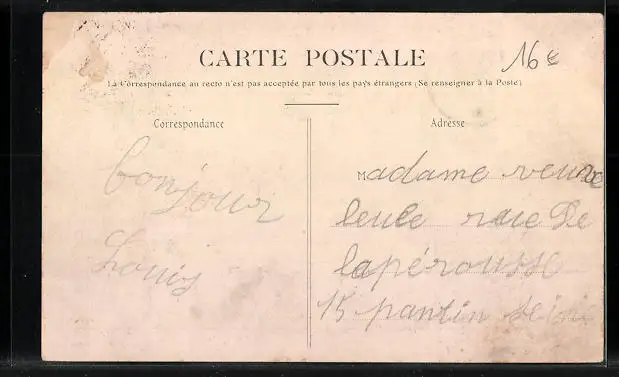 CARTE POSTALE
16 €
La Correspondance au recto n'est pas acceptée par tous les pays étrangers (Se renseigner à la Poste)
Correspondance
Adresse
bonjour
Louis
Madame veuve
leule rue De
lapérousse
15 pantin seine